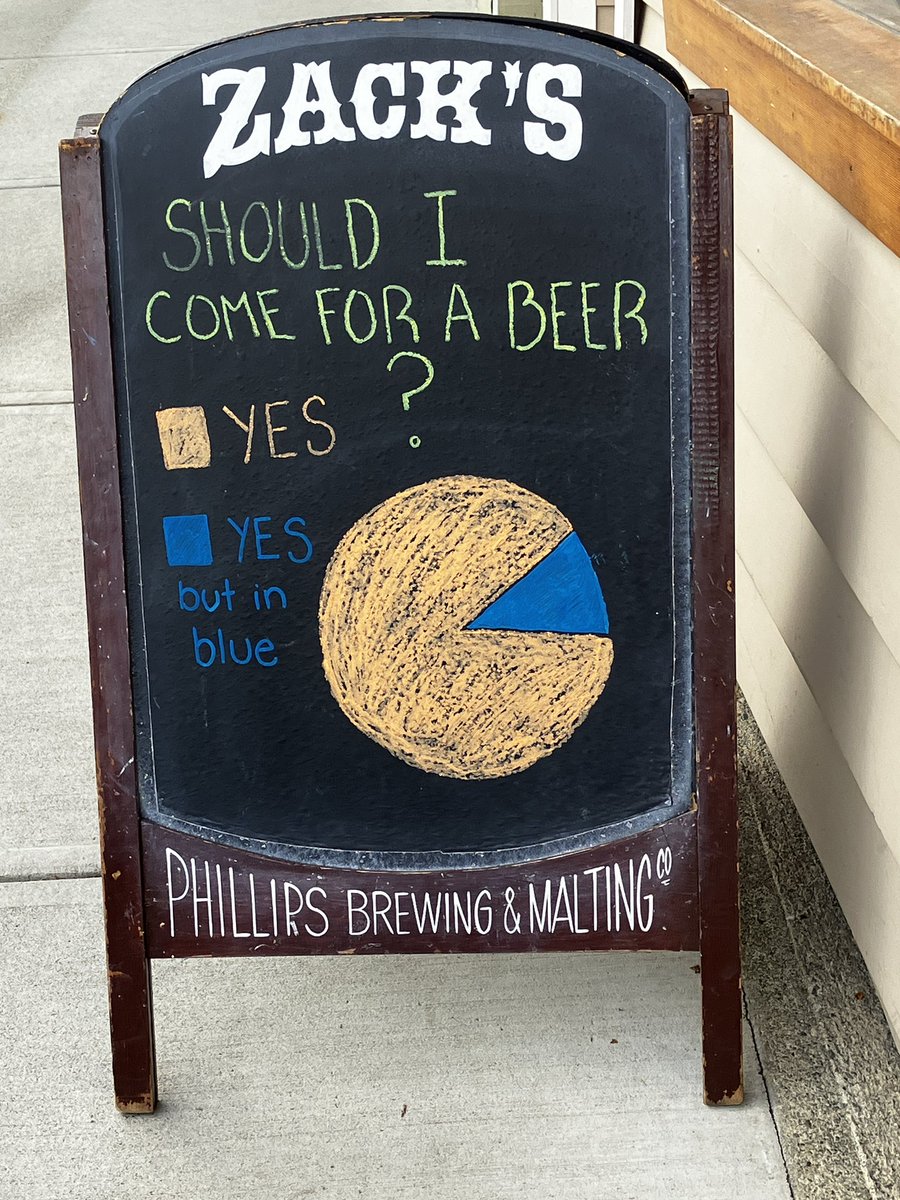 ZACK'S
SHOULD I
COME FOR A BEER
?
YES
YES
but in
blue
PHILLIPS BREWING & MALTING CO